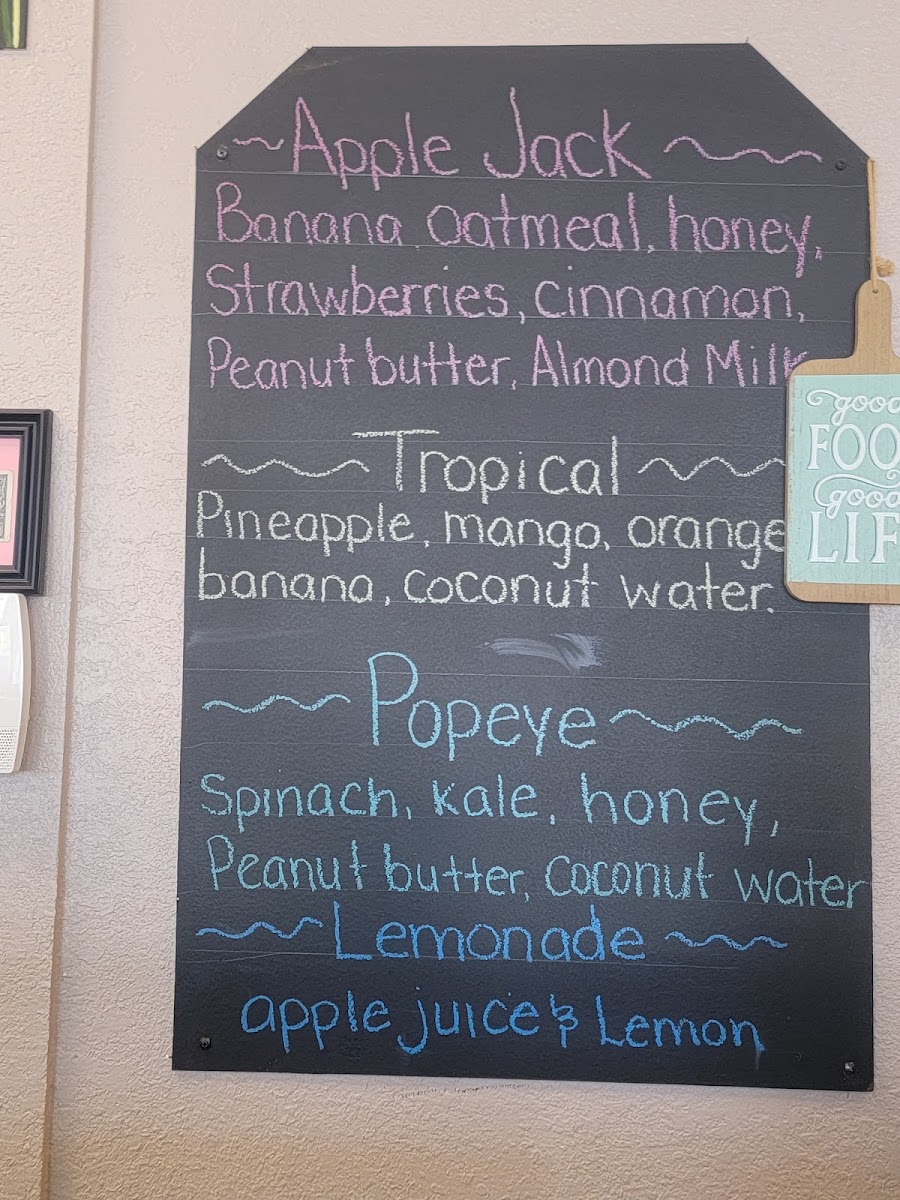 ~Apple Jack~
Banana, oatmeal, honey,
Strawberries, cinnamon,
Peanut butter, Almond Milk
~Tropical~
Pineapple, mango, orange
banana, coconut water.
~Popeye~
Spinach, kale, honey,
Peanut butter, coconut water
~Lemonade~
apple juice & Lemon
good
FOO
good
LIF